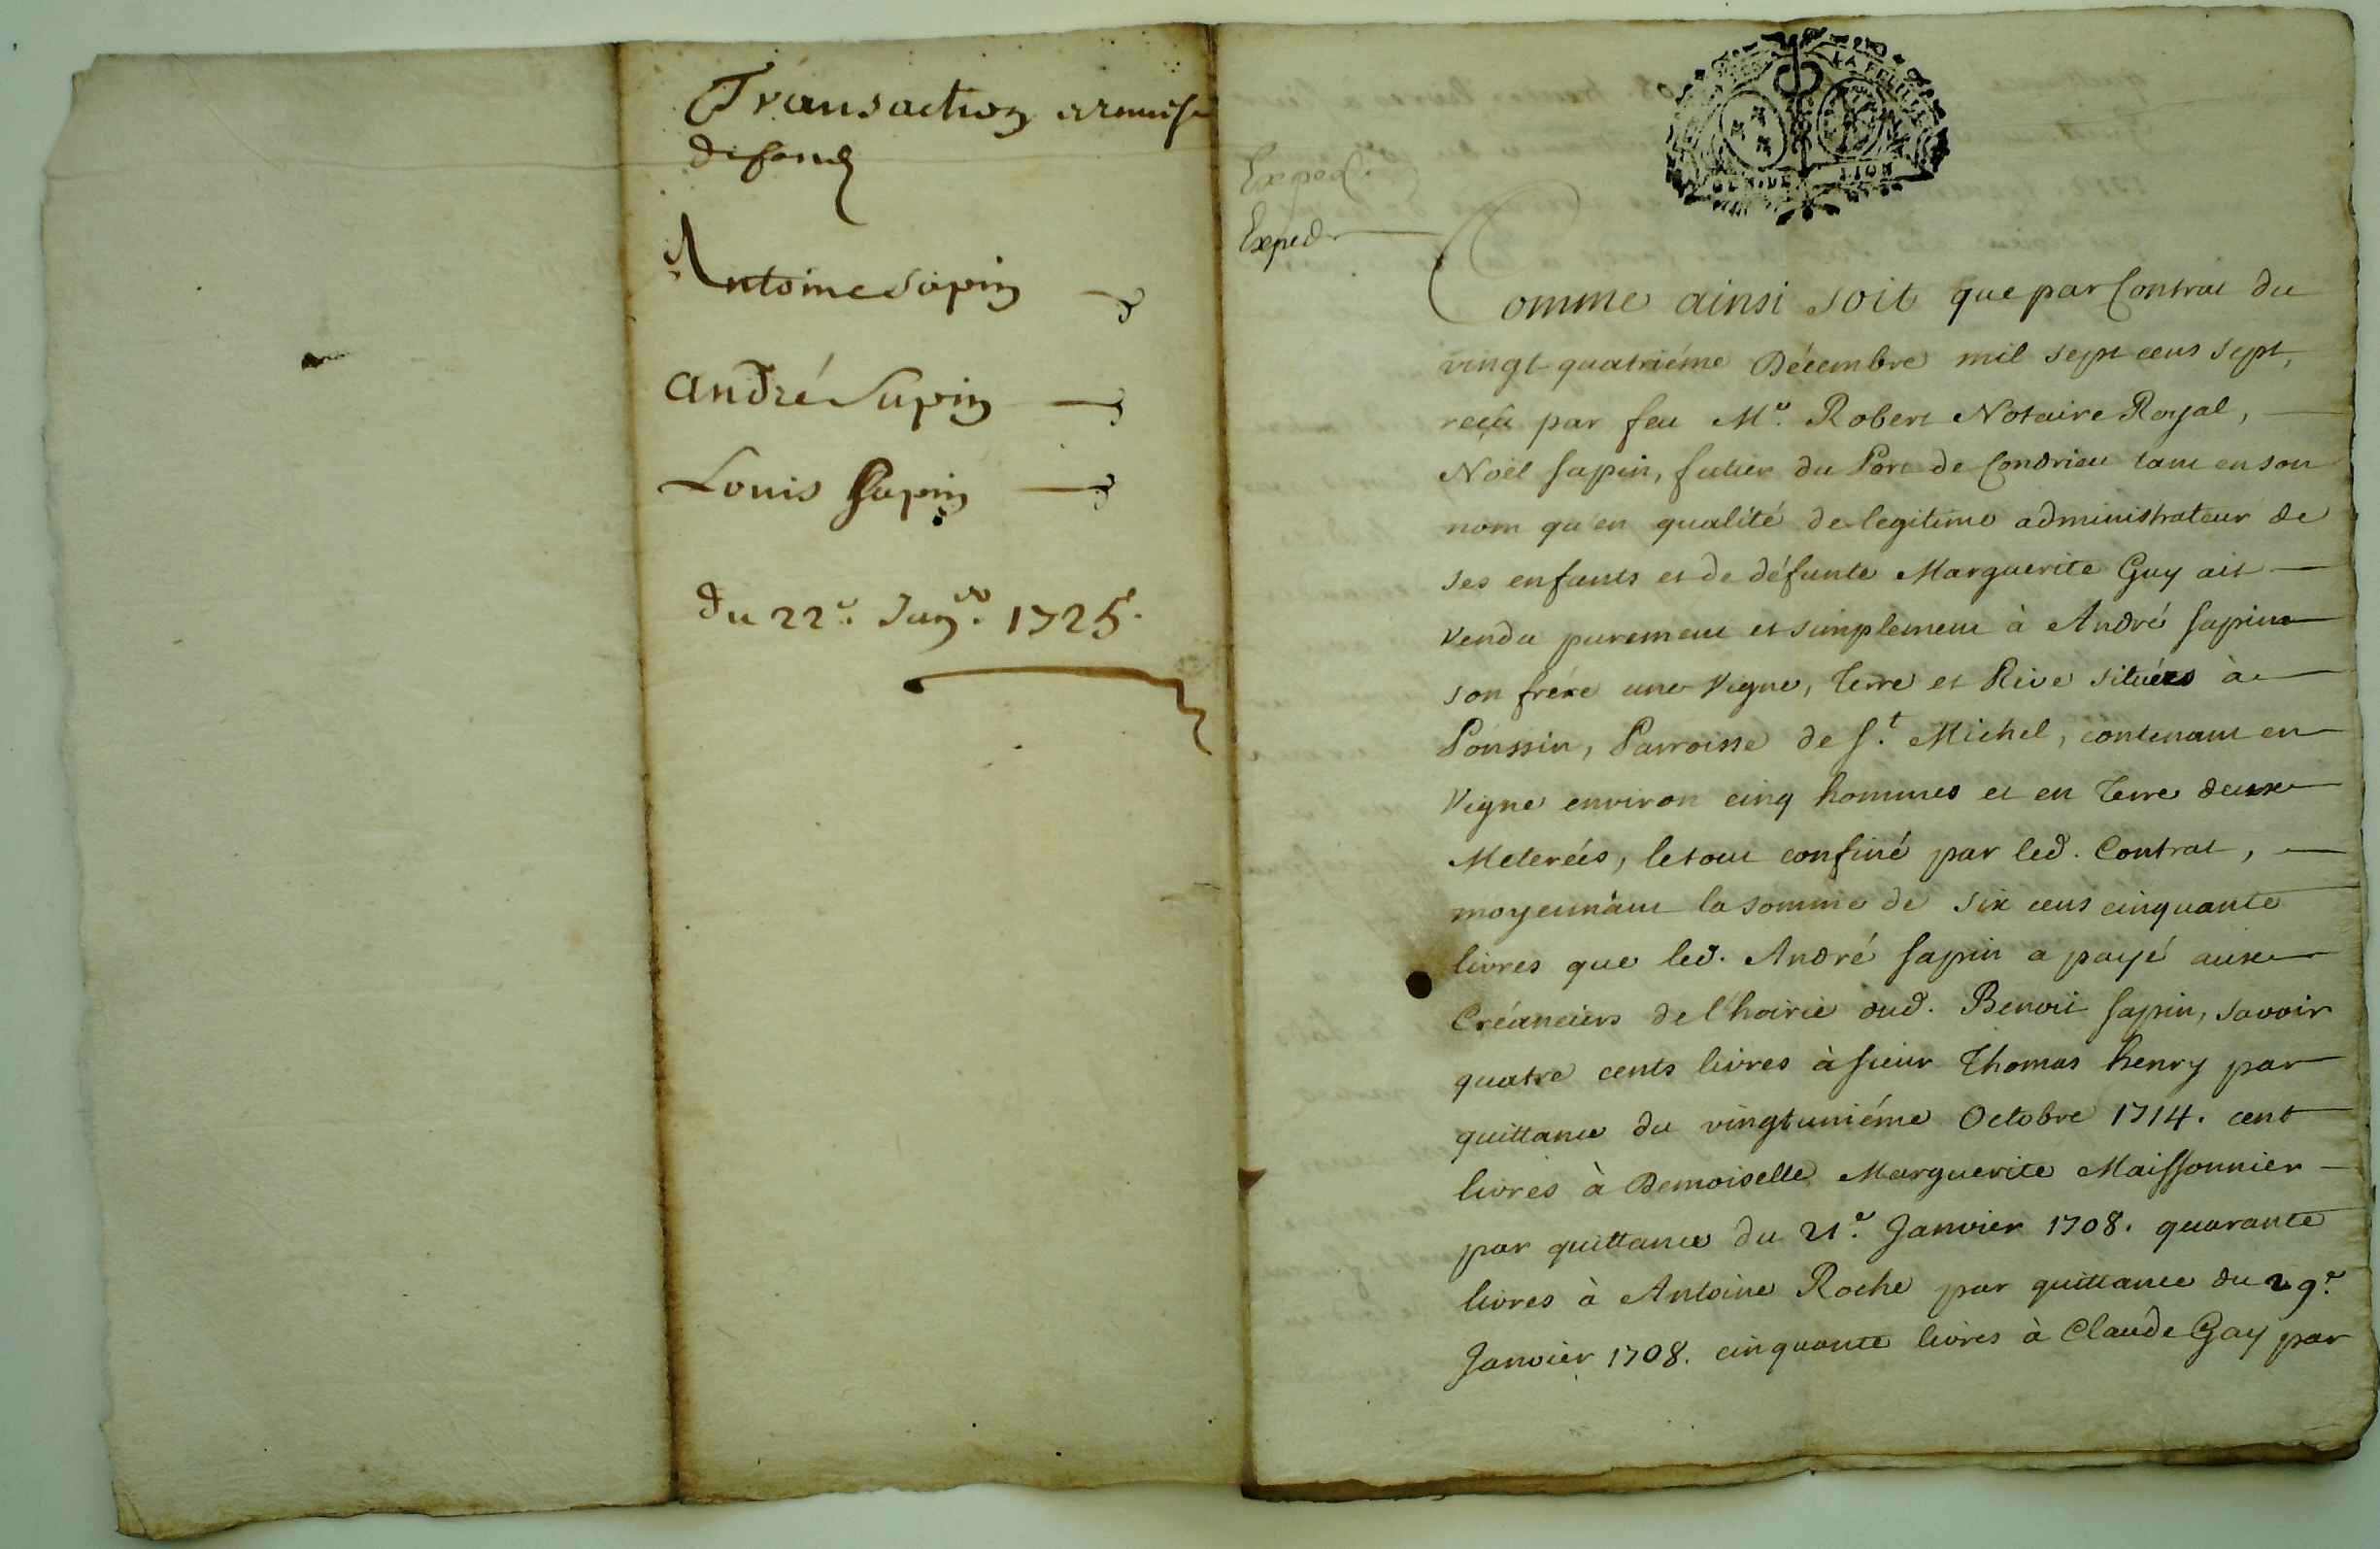 Transaction et remise
de fond
Antoine Sapin
André Sapin
Louis Sapin
du 22e. Janv. 1725.
Exped.
Exped.
Comme ainsi soit que par Contrat du
vingt-quatriéme Décembre mil sept cens sept,
reçû par feu Me. Robert Notaire Royal,
Noël Sapin, futier du Port de Condrieu tant en son
nom qu'en qualité de legitime administrateur de
ses enfants et de défunte Marguerite Guy ait
Vendu purement et simplement à André Sapin
son frére une Vigne, Terre et Rive situées à
Ponssin, Parroisse de St. Michel, contenant en
Vigne environ cinq hommes et en Terre deux
Meterées, le tout confiné par led. Contrat,
moyennant la somme de six cens cinquante
livres que led. André Sapin a payé aux
Créanciers de l'hoirie dud. Benoit Sapin, savoir
quatre cents livres à Sieur Thomas henry par
quittance du vingtuniéme Octobre 1714. cent
livres à Demoiselle Marguerite Maissonnier
par quittance du 21e. Janvier 1708. quarante
livres à Antoine Roche par quittance du 29e.
Janvier 1708. cinquante livres à Claude Gay par